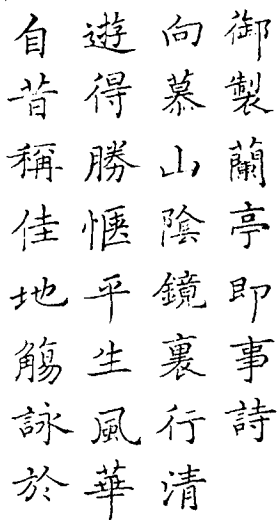 御製蘭亭即事詩
向慕山陰鏡裏行清
遊得勝愜平生風華
自昔稱佳地觴詠於